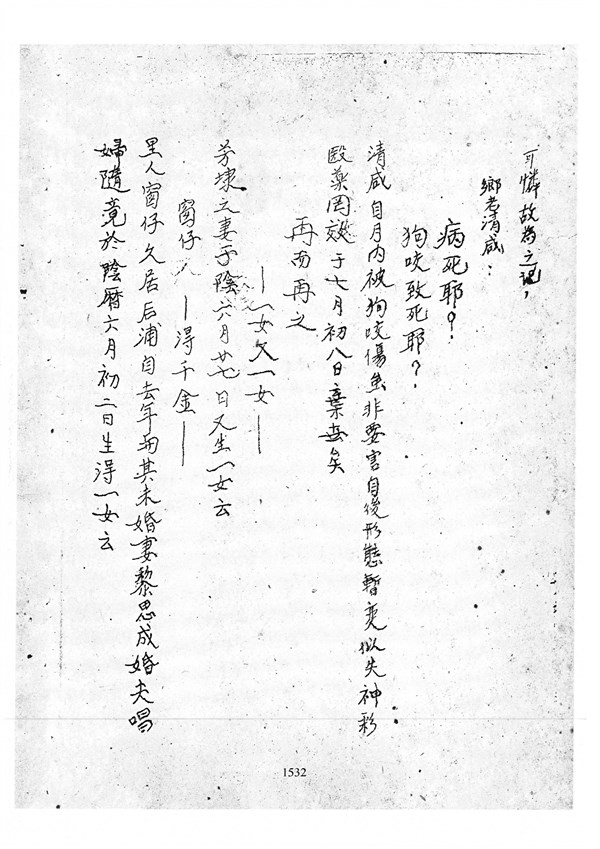 可憐故為之記，
鄉老清咸：
病死耶？
狗咬致死耶？
清咸自月内被狗咬傷虽非要害自後形態暫變似失神彩
醫藥罔效于七月初八日棄世矣
再而再之
—一女又一女—
芳埭之妻于陰六月廿七日又生一女云
窗仔
—得千金—
里人窗仔久居后浦自去年与其未婚妻黎思成婚夫唱
婦隨竟於陰曆六月初二日生得一女云
1532